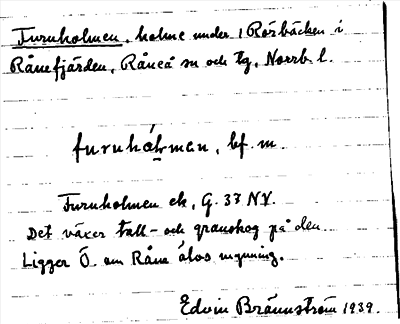 Furuholmen, holme under 1 Rörbäcken i
Rånefjärden, Råneå sn och tg, Norrb. l.
furuhólmen, bf. m.
Furuholmen ek, G. 33 NV.
Det växer tall- och granskog på den
Ligger Ö. om Råne älvs mynning.
Edvin Brännström 1939.